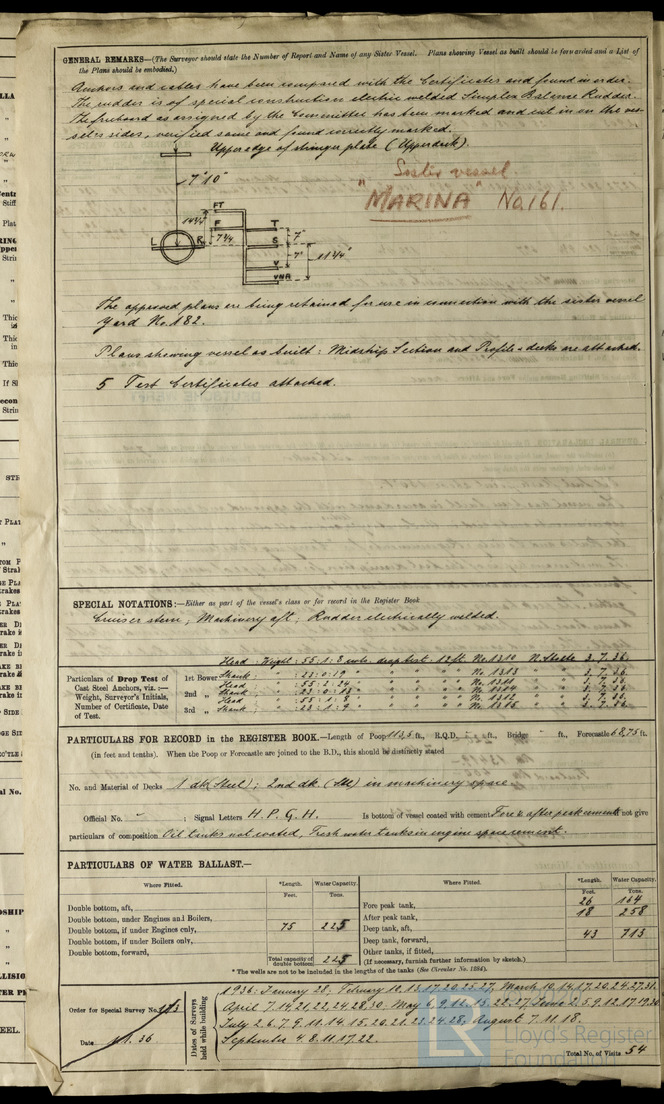 GENERAL REMARKS—(The Surveyor should state the Number of Report and Name of any Sister Vessel. Plans showing Vessel as built should be forwarded and a List of
the Plans should be embodied.)
Anchors and cables have been compared with the Certificates and found in order.
The rudder is of special construction electric welded Simplex Balance Rudder.
The freeboard as assigned by the Committee has been marked and cut in on the ves-
sels sides, verified same and found correctly marked.
Upper edge of stringer plate (Upperdeck).
Sister vessel.
7' 10"
"MARINA" No. 161.
FT
F
7 3/4
T
7"
L
R
S
7"
11 3/4"
V
WNA
The approved plans are being retained for use in connection with the sister vessel
Yard No. 182.
Plans showing vessel as built: Midship Section and Profile & decks are attached.
5 Test Certificates attached.
SPECIAL NOTATIONS:—Either as part of the vessel's class or for record in the Register Book
Cruiser stern; Machinery aft; Rudder electrically welded.
Particulars of Drop Test of
Cast Steel Anchors, viz.:—
Weight, Surveyor's Initials,
Number of Certificate, Date
of Test.
Head: Weight: 55:1:8 drop test: 12 ft. No. 1310 3.7.36.
1st Bower Shank: 23:0:19 " " " No. 1313 3.7.36.
2nd " Head
Shank
3rd " Head
Shank
PARTICULARS FOR RECORD in the REGISTER BOOK.—Length of Poop 113,5 ft., R.Q.D. - ft., Bridge - ft., Forecastle 68,75 ft.
(in feet and tenths). When the Poop or Forecastle are joined to the B.D., this should be distinctly stated
No. and Material of Decks 1 dk (Steel); 2nd dk. (Stl) in machinery space
Official No. - ; Signal Letters H. P. G. H. Is bottom of vessel coated with cement Fore & after peak cement if not give
particulars of composition Oil tanks not coated, Fresh water tanks in engine space cement.
PARTICULARS OF WATER BALLAST.—
Where Fitted. *Length. Water Capacity. Where Fitted. *Length. Water Capacity.
Feet. Tons. Feet. Tons.
Double bottom, aft, Fore peak tank, 26 164
Double bottom, under Engines and Boilers, After peak tank, 18 258
Double bottom, if under Engines only, 75 225 Deep tank, aft, 43 713
Double bottom, if under Boilers only, Deep tank, forward,
Double bottom, forward, Other tanks, if fitted,
Total capacity of double bottom 225 (If necessary, furnish further information by sketch.)
* The wells are not to be included in the lengths of the tanks (See Circular No. 1284).
Order for Special Survey No.
Date 36
Dates of Surveys held while building
1936: January 28. February 10.13.17.20.25.27. March 10.14.17.20.24.27.31.
April 7.14.21.22.24.28.30. May 6.9.12.15.22.27. June 2.5.9.12.17.19.30
July 2.6.7.9.11.14.15.20.21.23.24.28. August 7.11.18.
September 4.8.11.17.22.
Total No. of Visits 54
Lloyd's Register
Foundation